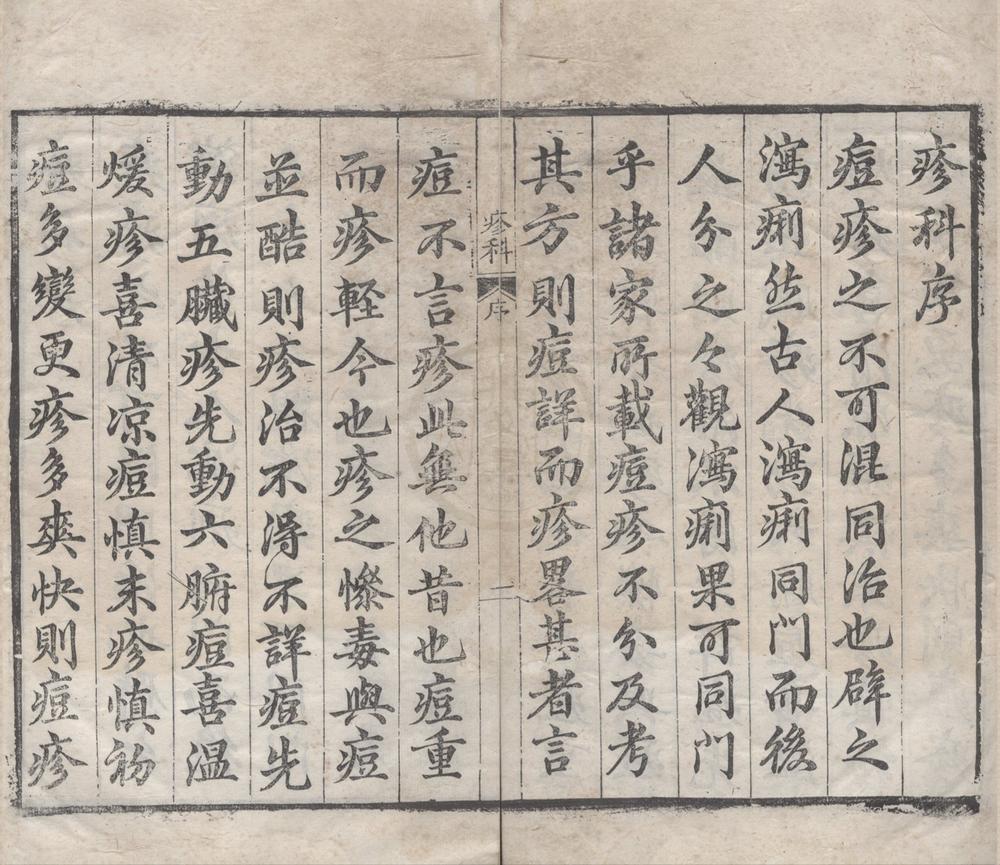 疹科序
痘疹之不可混同治也辟之
瀉痢然古人瀉痢同門而後
人分之々觀瀉痢果可同門
乎諸家所載痘疹不分及考
其方則痘詳而疹畧其者言
疹科 序 二
痘不言疹此無他昔也痘重
而疹軽今也疹之慘毒與痘
並酷則疹治不得不詳痘先
動五臟疹先動六腑痘喜溫
煖疹喜清凉痘慎末疹慎初
痘多變更疹多爽快則痘疹